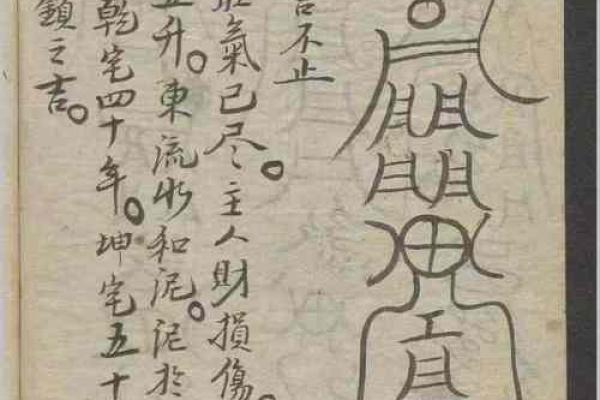 不止
氣已尽。主人財損傷。
五升。東流水和泥。泥於
乾宅四十年。坤宅五十
鎮之吉。